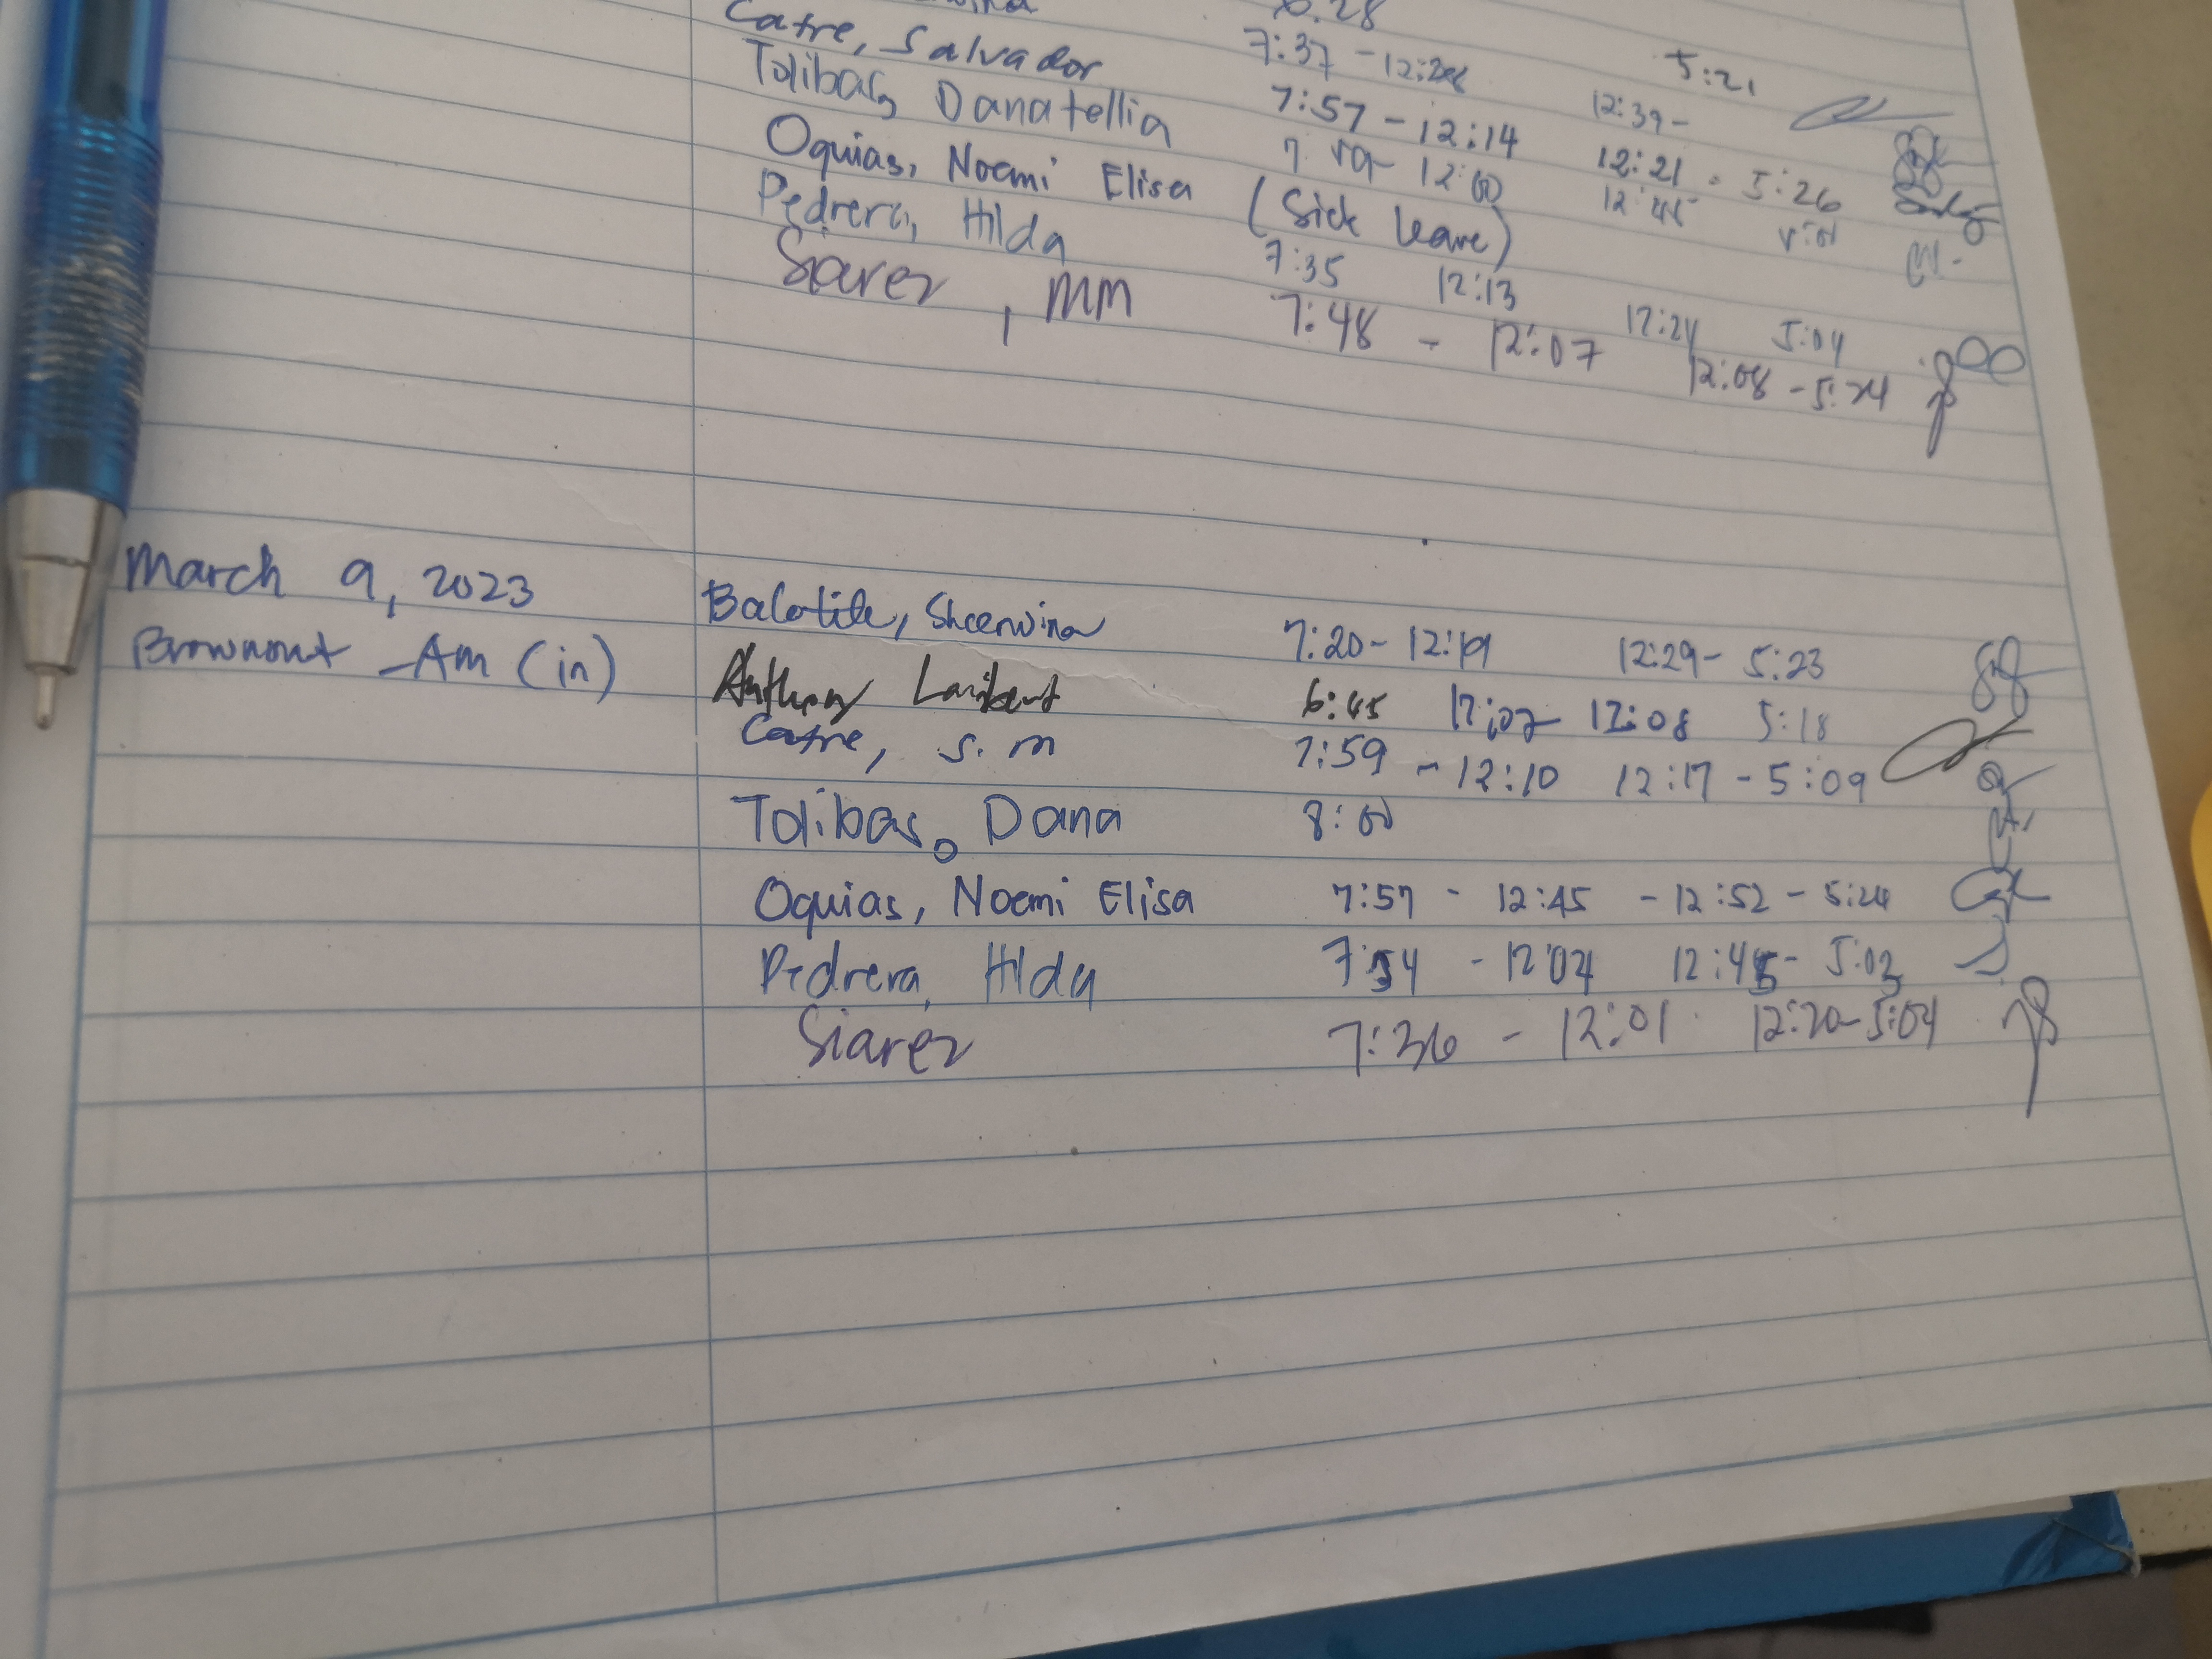 Catre, Salvador 7:37 - 12:28 5:21
Tolibas, Danatellia 7:57 - 12:14 12:39 -
Oquias, Noemi Elisa 12:00 12:21 - 5:26
Pedrera, Hilda (Sick leave)
Siarez, MM 7:35 12:13 12:24 5:04
7:48 - 12:07 12:08 - 5:24
March 9, 2023 Balotite, Sheerwina 7:20 - 12:19 12:29 - 5:23
Brownout - Am (in) Anthony Lambert 6:45 12:07 12:08 5:18
Catre, S.M 7:59 - 12:10 12:17 - 5:09
Tolibas, Dana 8:00
Oquias, Noemi Elisa 7:57 - 12:45 - 12:52 - 5:24
Pedrera, Hilda 7:54 - 12:02 12:45 - 5:03
Siarez 7:36 - 12:01 12:20 - 5:04